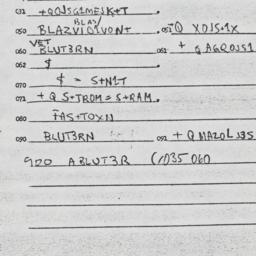 032 +Q0JSG1MEJK+T
BLAS/
050 BLAZV1Q1VONT . 051 Q XOJS+1X
VET
060 BLUT3RN 061 + Q AGR0JS1
062 $
070 $ = S+N1T
072 + Q S+TROM = S+RAM.
080 FAS+TOXN
090 BLUT3RN 092 + Q MAZOL
920 ABLUT3R (1035 060